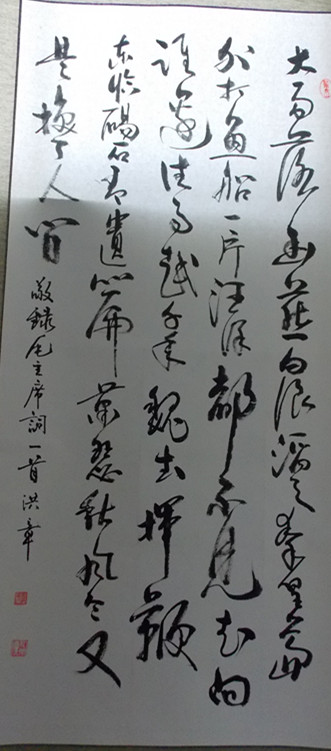 大雨落幽燕白浪滔天秦皇島
外打魚船一片汪洋都不見知向
誰邊往事越千年魏武揮鞭
東臨碣石有遺篇蕭瑟秋風今又
是換了人間
敬錄毛主席詞一首洪章